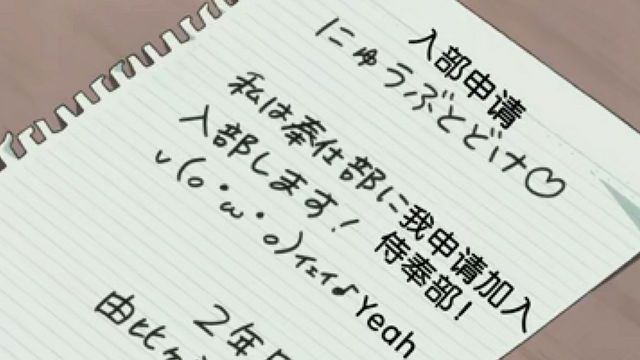 入部申请
にゅうぶとどけ♡
私は奉仕部に
入部します!
v(o・ω・o)イェイ♪
我申请加入
侍奉部!
Yeah
2年
由比